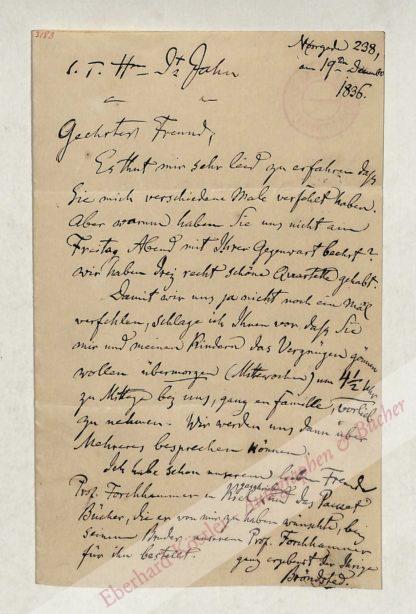 3183
Norrgade 238,
am 19ten December
1836.
S. T. Hrn Dr Jahn
Geehrter Freund,
Es thut mir sehr leid zu erfahren dass
Sie mich verschiedene Male verfehlt haben.
Aber warum haben Sie uns nicht am
Freitag Abend mit Ihrer Gegenwart beehrt?
wir haben drej recht schöne Quartette gehabt.
Damit wir uns ja nicht noch ein Mal
verfehlen, schlage ich Ihnen vor dass Sie
mir und meinen Kindern das Vergnügen gönnen
wollen übermorgen (Mittwochen) um 4½ Uhr
zu Mittage bey uns, ganz en famille, vorlieb
zu nehmen. Wir werden uns dann über
Mehreres besprechen können.
Ich habe schon unserem Freund
Prof. Forchhammer in Kiel und das Packet
Bücher, die er von mir zu haben wünschte, bey
seinem Bruder, unserem Prof. Forchhammer
für ihn bestellt.
ganz ergebenst der Ihrige
Bröndsted.
Eberhard Köstler Autographen & Bücher